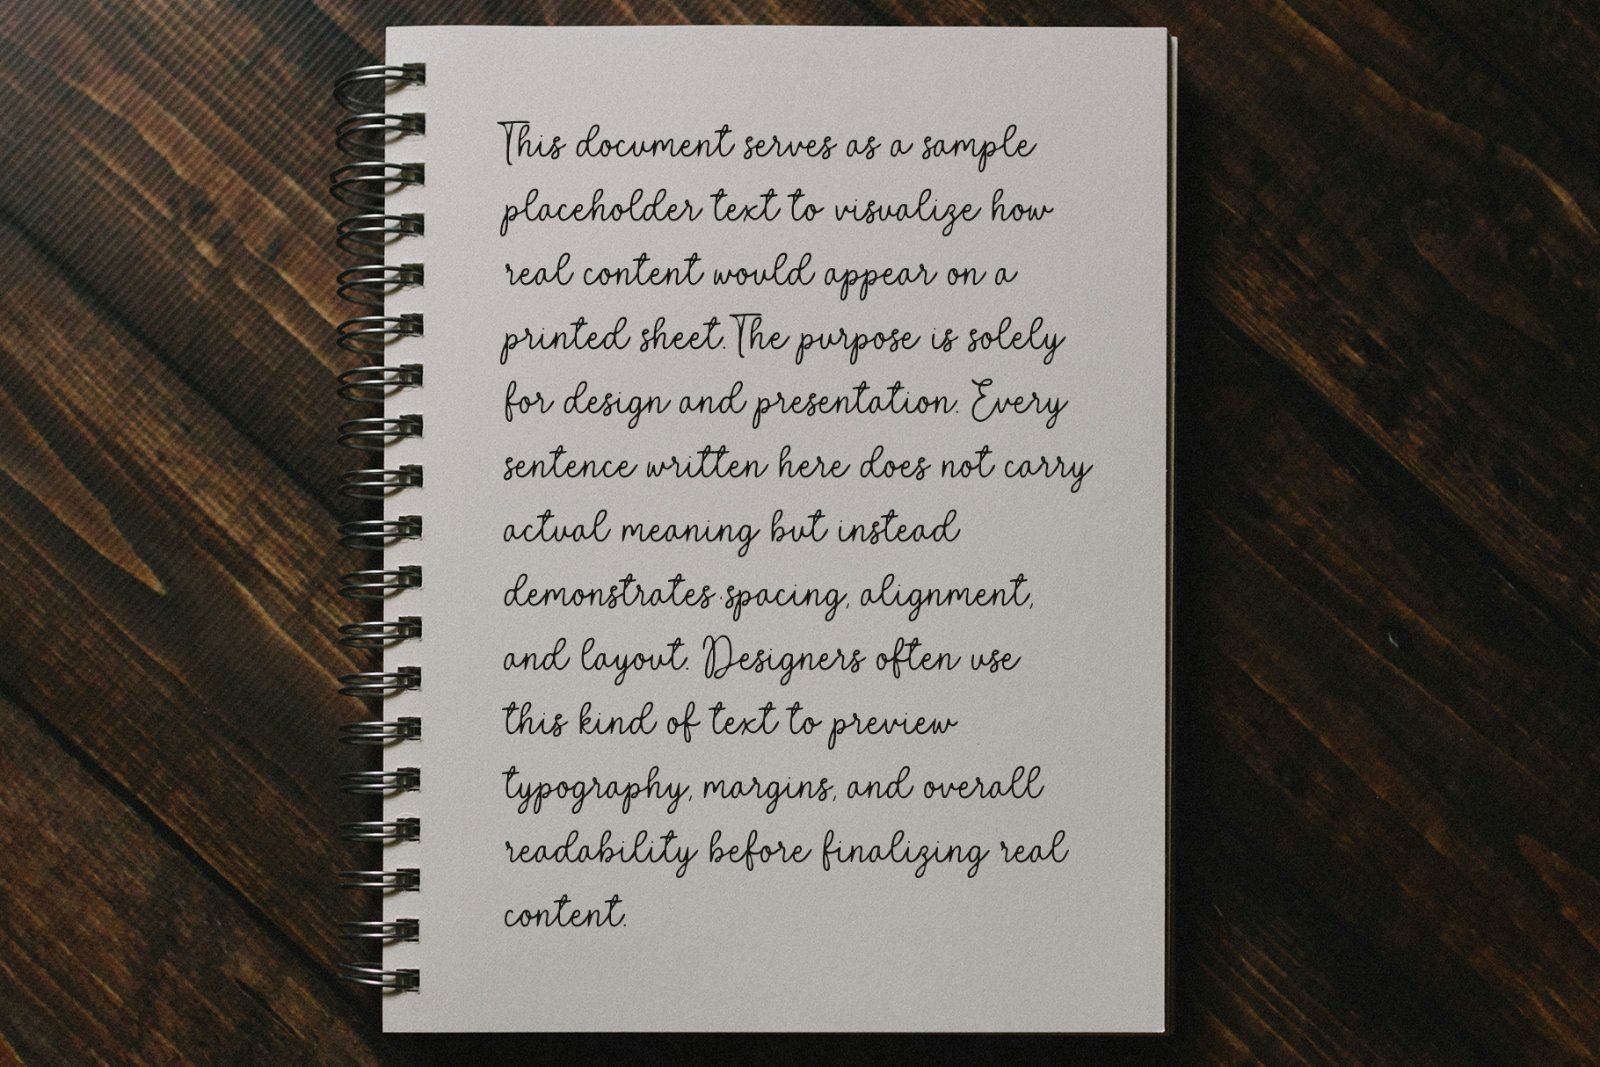 This document serves as a sample
placeholder text to visualize how
real content would appear on a
printed sheet. The purpose is solely
for design and presentation. Every
sentence written here does not carry
actual meaning but instead
demonstrates spacing, alignment,
and layout. Designers often use
this kind of text to preview
typography, margins, and overall
readability before finalizing real
content.